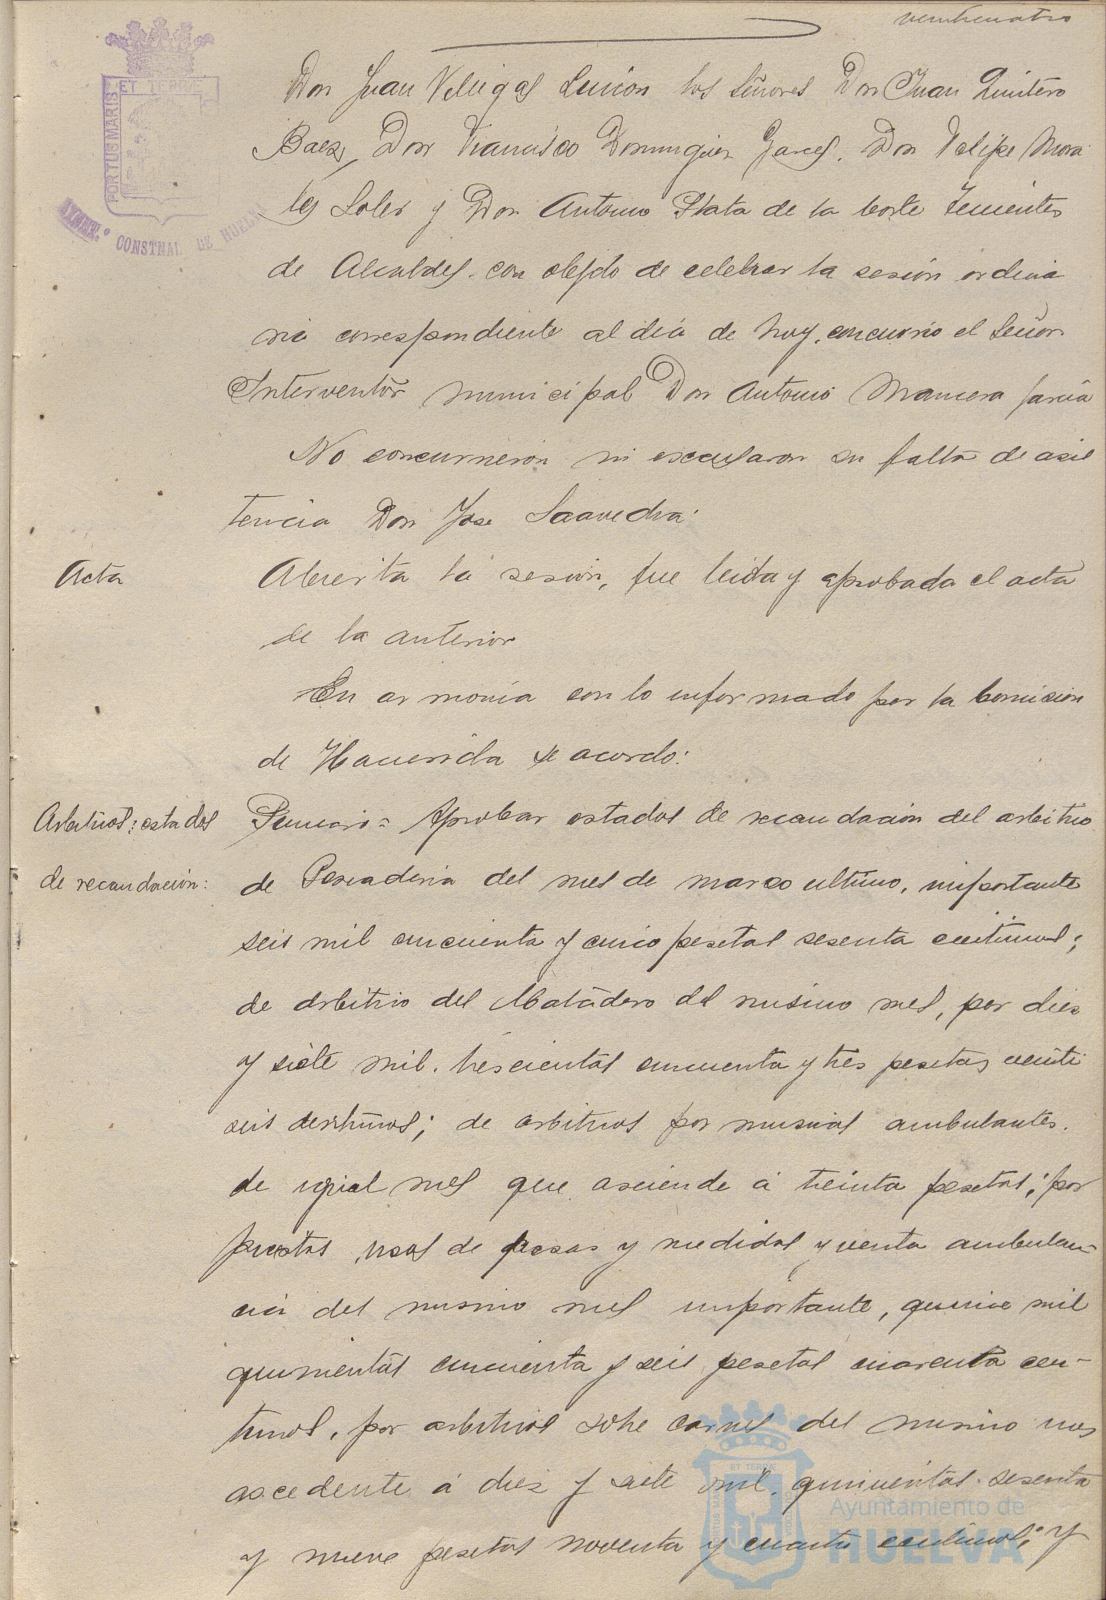 veinticuatro
PORTUS MARIS ET TERRE
AYUNM.º CONSTNAL DE HUELVA
Don Juan Villegas los Señores Don Juan Quintero
Baez, Don Francisco Dominguez Garces, Don Felipe Mora
les Soler y Don Antonio Plata de la Corte Tenientes
de Alcaldes con objeto de celebrar la sesión ordina
ria correspondiente al dia de hoy, concurrio el Señor
Interventor municipal Don Antonio Mancera Garcia
No concurrieron ni escusaron su falta de asis
tencia Don Jose Saavedra.
Acta
Abierta la sesion, fue leida y aprobada el acta
de la anterior
En armonia con lo informado por la Comision
de Hacienda se acordo:
Arbitrios: estados
de recaudación:
Primero = Aprobar estados de recaudación del arbitrio
de Pescaderia del mes de marzo ultimo, importante
seis mil cincuenta y cinco pesetas sesenta centimos;
de arbitrio del Matadero del mismo mes, por diez
y siete mil trescientas cincuenta y tres pesetas veinti
seis centimos; de arbitrios por musicas ambulantes
de igual mes que asciende á treinta pesetas; por
puestos, usos de pesas y medidas y venta ambulan-
cia del mismo mes importante, quince mil
quinientas cincuenta y seis pesetas cuarenta cen-
timos, por arbitrios sobre carnes del mismo mes
ascedente á diez y siete mil quinientas sesenta
y nueve pesetas noventa y cuatro centimos; y
Ayuntamiento de
HUELVA